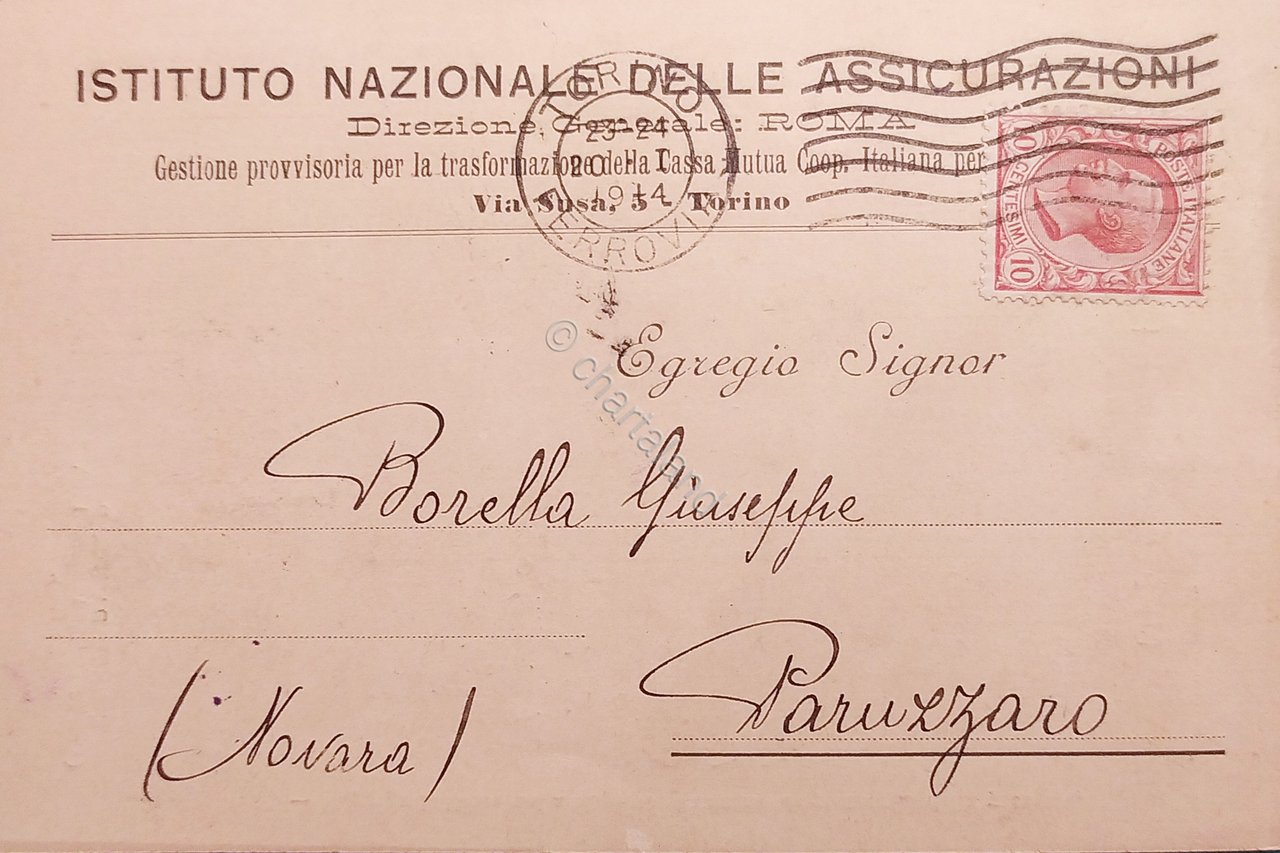 ISTITUTO NAZIONALE DELLE ASSICURAZIONI
Direzione Generale: ROMA
Gestione provvisoria per la trasformazione della Cassa Mutua Coop. Italiana per
Via Susa, 5 - Torino
TORINO
23-24
20 · I
1914
FERROVIA
POSTE ITALIANE
CENTESIMI 10
© chartaland
Egregio Signor
Borella Giuseppe
Paruzzaro
(Novara)